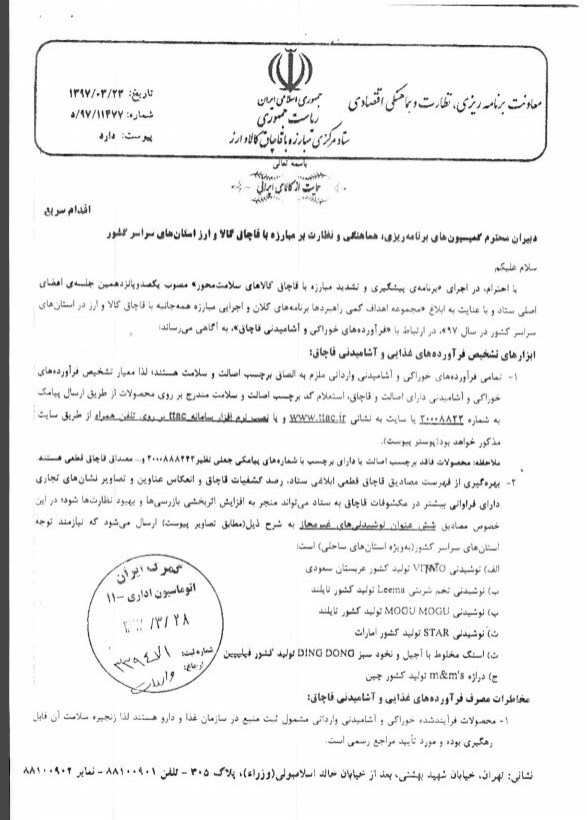 جمهوری اسلامی ایران
ریاست جمهوری
ستاد مرکزی مبارزه با قاچاق کالا و ارز
معاونت برنامه ریزی، نظارت و هماهنگی اقتصادی
تاریخ: ۱۳۹۷/۰۳/۲۳
شماره: ۵/۹۷/۱۱۴۷۷
پیوست: دارد
باسمه تعالی
حمایت از کالای ایرانی
اقدام سریع
دبیران محترم کمیسیون‌های برنامه‌ریزی، هماهنگی و نظارت بر مبارزه با قاچاق کالا و ارز استان‌های سراسر کشور
سلام علیکم
با احترام، در اجرای «برنامه‌ی پیشگیری و تشدید مبارزه با قاچاق کالاهای سلامت‌محور» مصوب یکصدوپانزدهمین جلسه‌ی اعضای
اصلی ستاد و با عنایت به ابلاغ «مجموعه اهداف کمی راهبردها برنامه‌های کلان و اجرایی مبارزه همه‌جانبه با قاچاق کالا و ارز در استان‌های
سراسر کشور در سال ۹۷»، در ارتباط با «فرآورده‌های خوراکی و آشامیدنی قاچاق»، به آگاهی می‌رساند:
ابزارهای تشخیص فرآورده‌های غذایی و آشامیدنی قاچاق:
۱- تمامی فرآورده‌های خوراکی و آشامیدنی وارداتی ملزم به الصاق برچسب اصالت و سلامت هستند؛ لذا معیار تشخیص فرآورده‌های
خوراکی و آشامیدنی دارای اصالت و قاچاق، استعلام کد برچسب اصالت و سلامت مندرج بر روی محصولات از طریق ارسال پیامک
به شماره ۲۰۰۰۸۸۲۲ یا سایت به نشانی www.ttac.ir و یا نصب نرم افزار سامانه ttac بر روی تلفن همراه از طریق سایت
مذکور خواهد بود(پوستر پیوست).
ملاحظه: محصولات فاقد برچسب اصالت یا دارای برچسب با شماره‌های پیامکی جعلی نظیر ۲۰۰۰۸۸۸۲۲۲ و... مصداق قاچاق قطعی هستند.
۲- بهره‌گیری از فهرست مصادیق قاچاق قطعی ابلاغی ستاد، رصد کشفیات قاچاق و انعکاس عناوین و تصاویر نشان‌های تجاری
دارای فراوانی بیشتر در مکشوفات قاچاق به ستاد می‌تواند منجر به افزایش اثربخشی بازرسی‌ها و بهبود نظارت‌ها شود؛ در این
خصوص مصادیق شش عنوان نوشیدنی‌های غیرمجاز به شرح ذیل(مطابق تصاویر پیوست) ارسال می‌شود که نیازمند توجه
استان‌های سراسر کشور(به‌ویژه استان‌های ساحلی) است:
الف) نوشیدنی VIMTO تولید کشور عربستان سعودی
ب) نوشیدنی تخم شربتی Leema تولید کشور تایلند
پ) نوشیدنی MOGU MOGU تولید کشور تایلند
ت) نوشیدنی STAR تولید کشور امارات
ث) اسنک مخلوط با آجیل و نخود سبز DING DONG تولید کشور فیلیپین
ج) دراژه m&m's تولید کشور چین
گمرک ایران
اتوماسیون اداری -۱۱
۲۸/۳/
شماره ثبت: ۳۳۹۴۷۱
ارجاع: واردات
مخاطرات مصرف فرآورده‌های غذایی و آشامیدنی قاچاق:
۱- محصولات فرآیندشده خوراکی و آشامیدنی وارداتی مشمول ثبت منبع در سازمان غذا و دارو هستند لذا زنجیره سلامت آن قابل
رهگیری بوده و مورد تأیید مراجع رسمی است.
نشانی: تهران، خیابان شهید بهشتی، بعد از خیابان خالد اسلامبولی(وزراء)، پلاک ۳۰۵ - تلفن ۸۸۱۰۰۹۰۱ - نمابر ۸۸۱۰۰۹۰۲